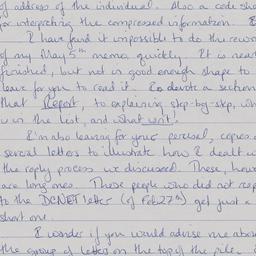 of address of the individual. Also a code sho
for interpreting the compressed information.
I have found it impossible to do the rewor
of my May 5th memo quickly. It is near
finished, but not in good enough shape to
leave for you to read it. Co devote a section
that Report, to explaining step-by-step, wh
is in the list, and what isn't.
I'm also leaving for your perusal, copies
several letters to illustrate how I dealt w
the reply process we discussed. These, how
are long ones. Those people who did not rep
to the DCNET letter (of Feb. 27th) get just a
short one.
I wonder if you would advise me abou
the group of letters on the top of the pile.